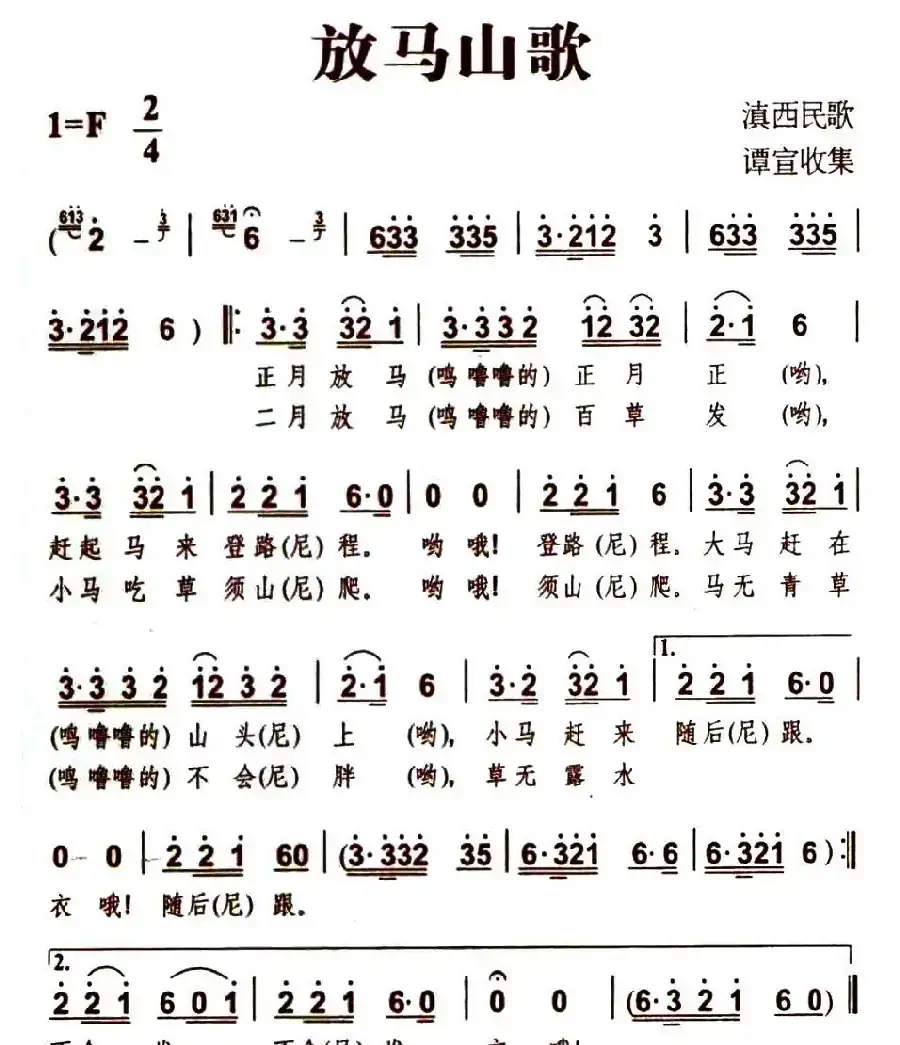 放马山歌
1=F 2/4
滇西民歌
谭宣收集
(2 – | 6 – | 633 335 | 3·212 3 | 633 335 |
3·212 6 ) |: 3·3 32 1 | 3·3 3 2 12 32 | 2·1 6 |
正月 放 马 (呜 噜噜的) 正 月 正 (哟),
二月 放 马 (呜 噜噜的) 百 草 发 (哟),
3·3 32 1 | 2 2 1 6·0 | 0 0 | 2 2 1 6 | 3·3 32 1 |
赶起 马 来 登路(尼) 程。 哟 哦! 登路 (尼) 程, 大马 赶 在
小马 吃 草 须山(尼) 爬。 哟 哦! 须山 (尼) 爬, 马无 青 草
3·3 3 2 12 3 2 | 2·1 6 | 3·2 32 1 | 1. 2 2 1 6·0 |
(呜 噜噜的) 山 头(尼) 上 (哟), 小马 赶 来 随后(尼) 跟。
(呜 噜噜的) 不 会(尼) 胖 (哟), 草无 露 水
0 – 0 | 2 2 1 60 | (3·332 35 | 6·321 6·6 | 6·321 6 ) :|
衣 哦! 随后(尼) 跟。
2. 2 2 1 6 0 1 | 2 2 1 6·0 | 0 0 | (6·3 2 1 60 ) ||